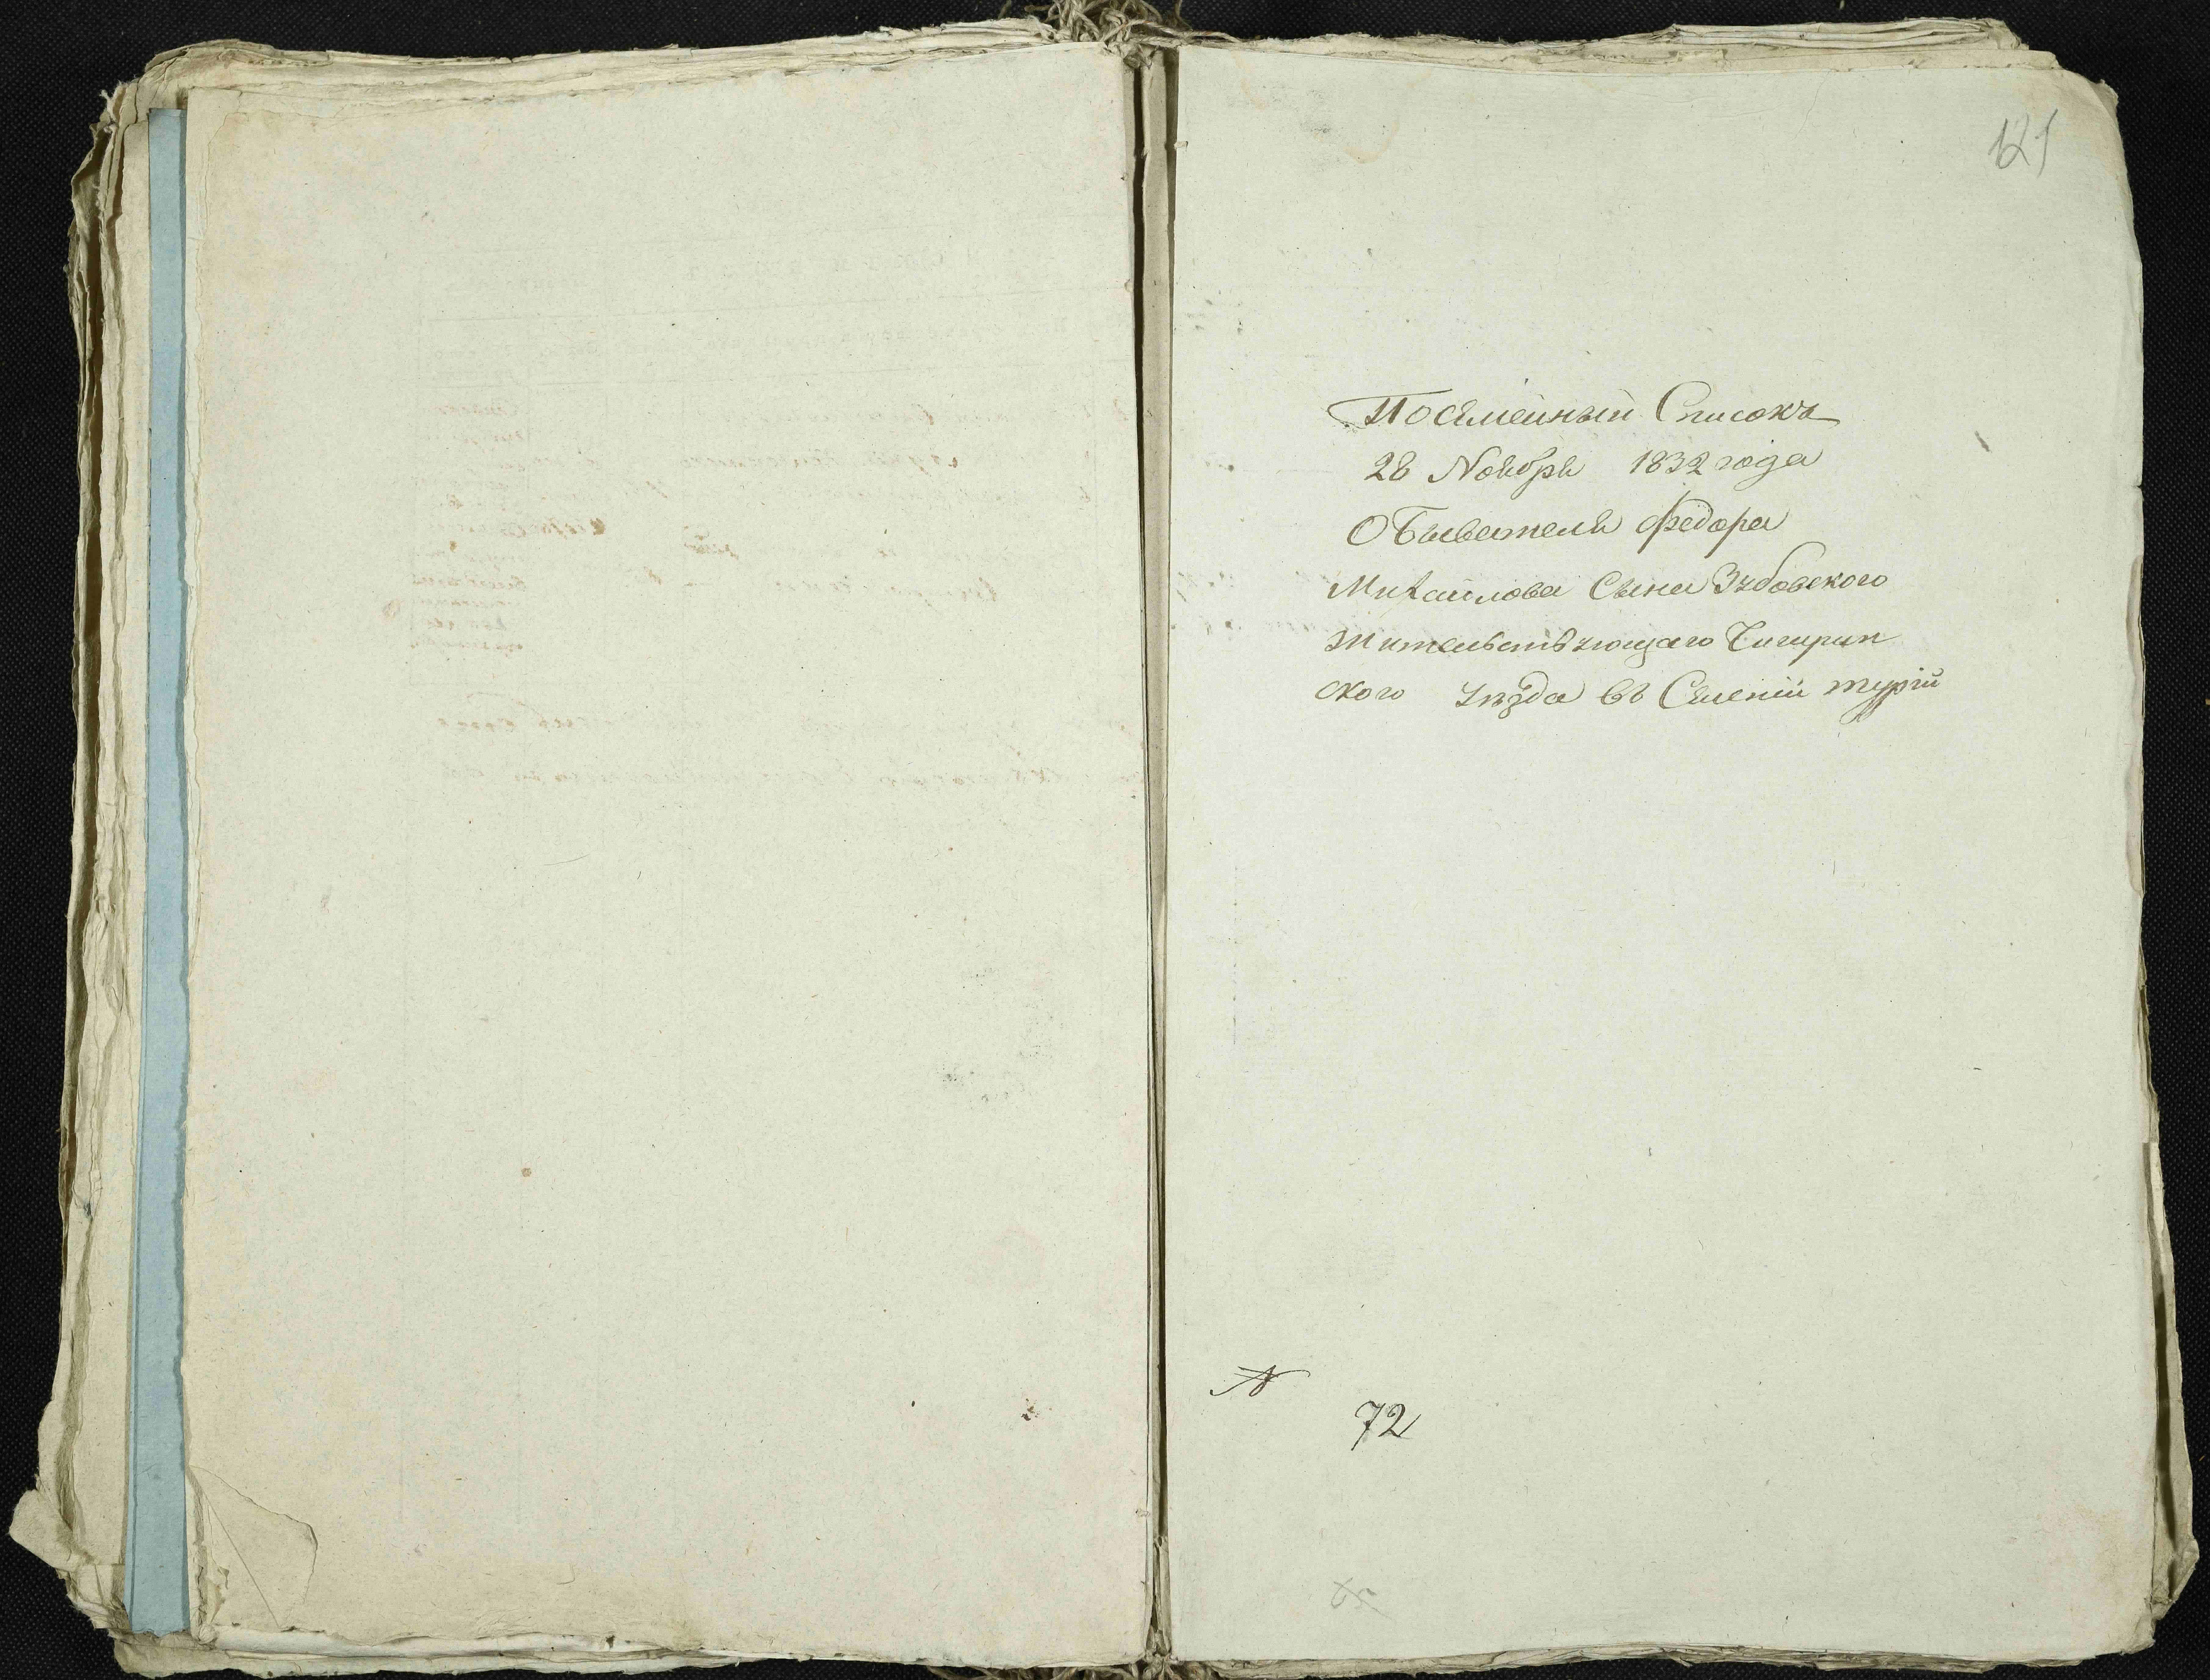 121
Посемейный Списокъ
28 Ноября 1832 года
Обывателя Федора
Михайлова Сына Зубовского
Жительствующаго Чигирин
ского уѣзда въ Селеніи турій
№
72